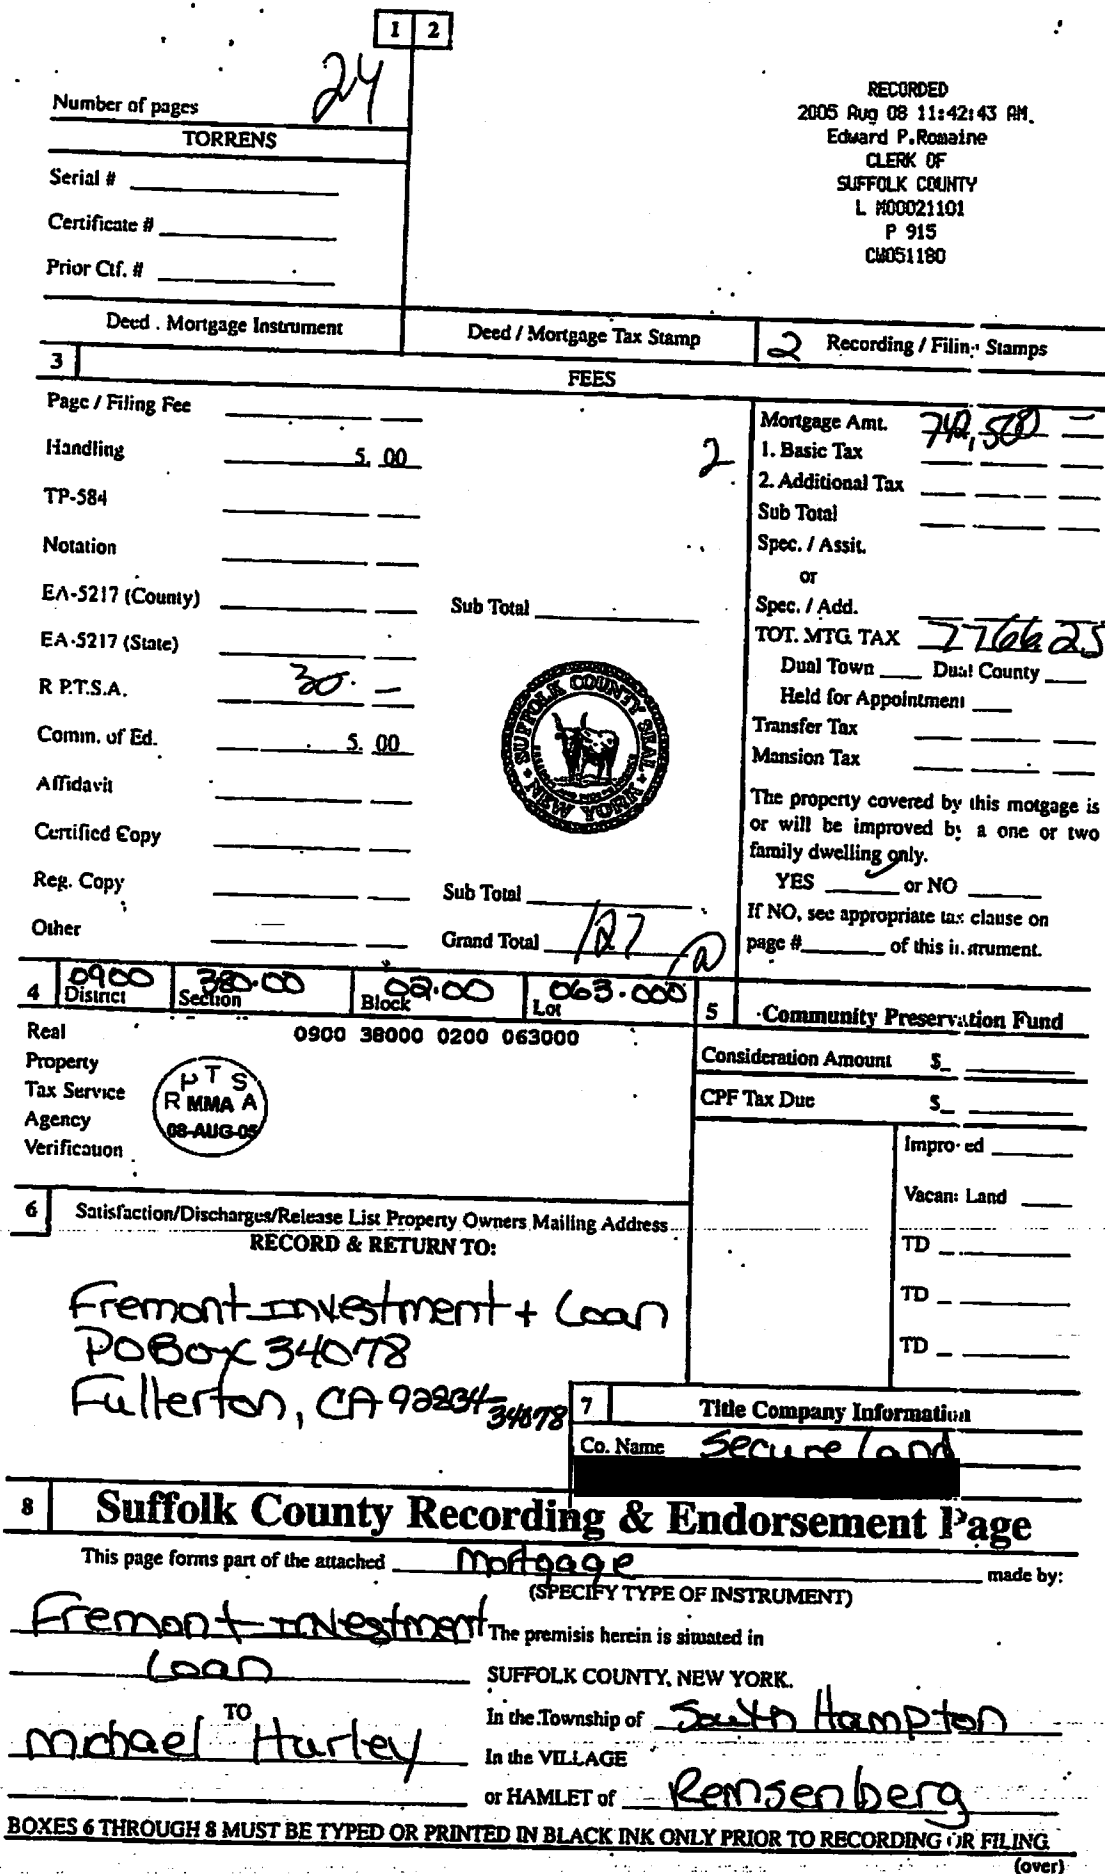 1 2
Number of pages 24
TORRENS
Serial #
Certificate #
Prior Ctf. #
RECORDED
2005 Aug 08 11:42:43 AM.
Edward P.Romaine
CLERK OF
SUFFOLK COUNTY
L M00021101
P 915
CW051180
Deed . Mortgage Instrument
Deed / Mortgage Tax Stamp
2 Recording / Filing Stamps
3 FEES
Page / Filing Fee
Handling 5. 00
TP-584
Notation
EA-5217 (County)
EA-5217 (State)
R P.T.S.A. 30. —
Comm. of Ed. 5. 00
Affidavit
Certified Copy
Reg. Copy
Other
2
Sub Total
SUFFOLK COUNTY SEAL
NEW YORK
Sub Total
Grand Total 127
Mortgage Amt. 742,500 —
1. Basic Tax
2. Additional Tax
Sub Total
Spec. / Assit.
or
Spec. / Add.
TOT. MTG. TAX 7766.25
Dual Town Dual County
Held for Appointment
Transfer Tax
Mansion Tax
The property covered by this motgage is
or will be improved by a one or two
family dwelling only.
YES or NO
If NO, see appropriate tax clause on
page # of this instrument.
4 0900 380.00 02.00 063.000
District Section Block Lot
Real
Property
Tax Service
Agency
Verification
0900 38000 0200 063000
P T S
R MMA A
08-AUG-05
5 Community Preservation Fund
Consideration Amount $
CPF Tax Due $
Improved
Vacant Land
TD
TD
TD
6 Satisfaction/Discharges/Release List Property Owners Mailing Address
RECORD & RETURN TO:
Fremont Investment + Loan
PO Box 34078
Fullerton, CA 92834-34078
7 Title Company Information
Co. Name Secure Land
8 Suffolk County Recording & Endorsement Page
This page forms part of the attached Mortgage made by:
(SPECIFY TYPE OF INSTRUMENT)
Fremont Investment
Loan
TO
Michael Hurley
The premisis herein is situated in
SUFFOLK COUNTY, NEW YORK.
In the Township of South Hampton
In the VILLAGE
or HAMLET of Remsenberg
BOXES 6 THROUGH 8 MUST BE TYPED OR PRINTED IN BLACK INK ONLY PRIOR TO RECORDING OR FILING.
(over)